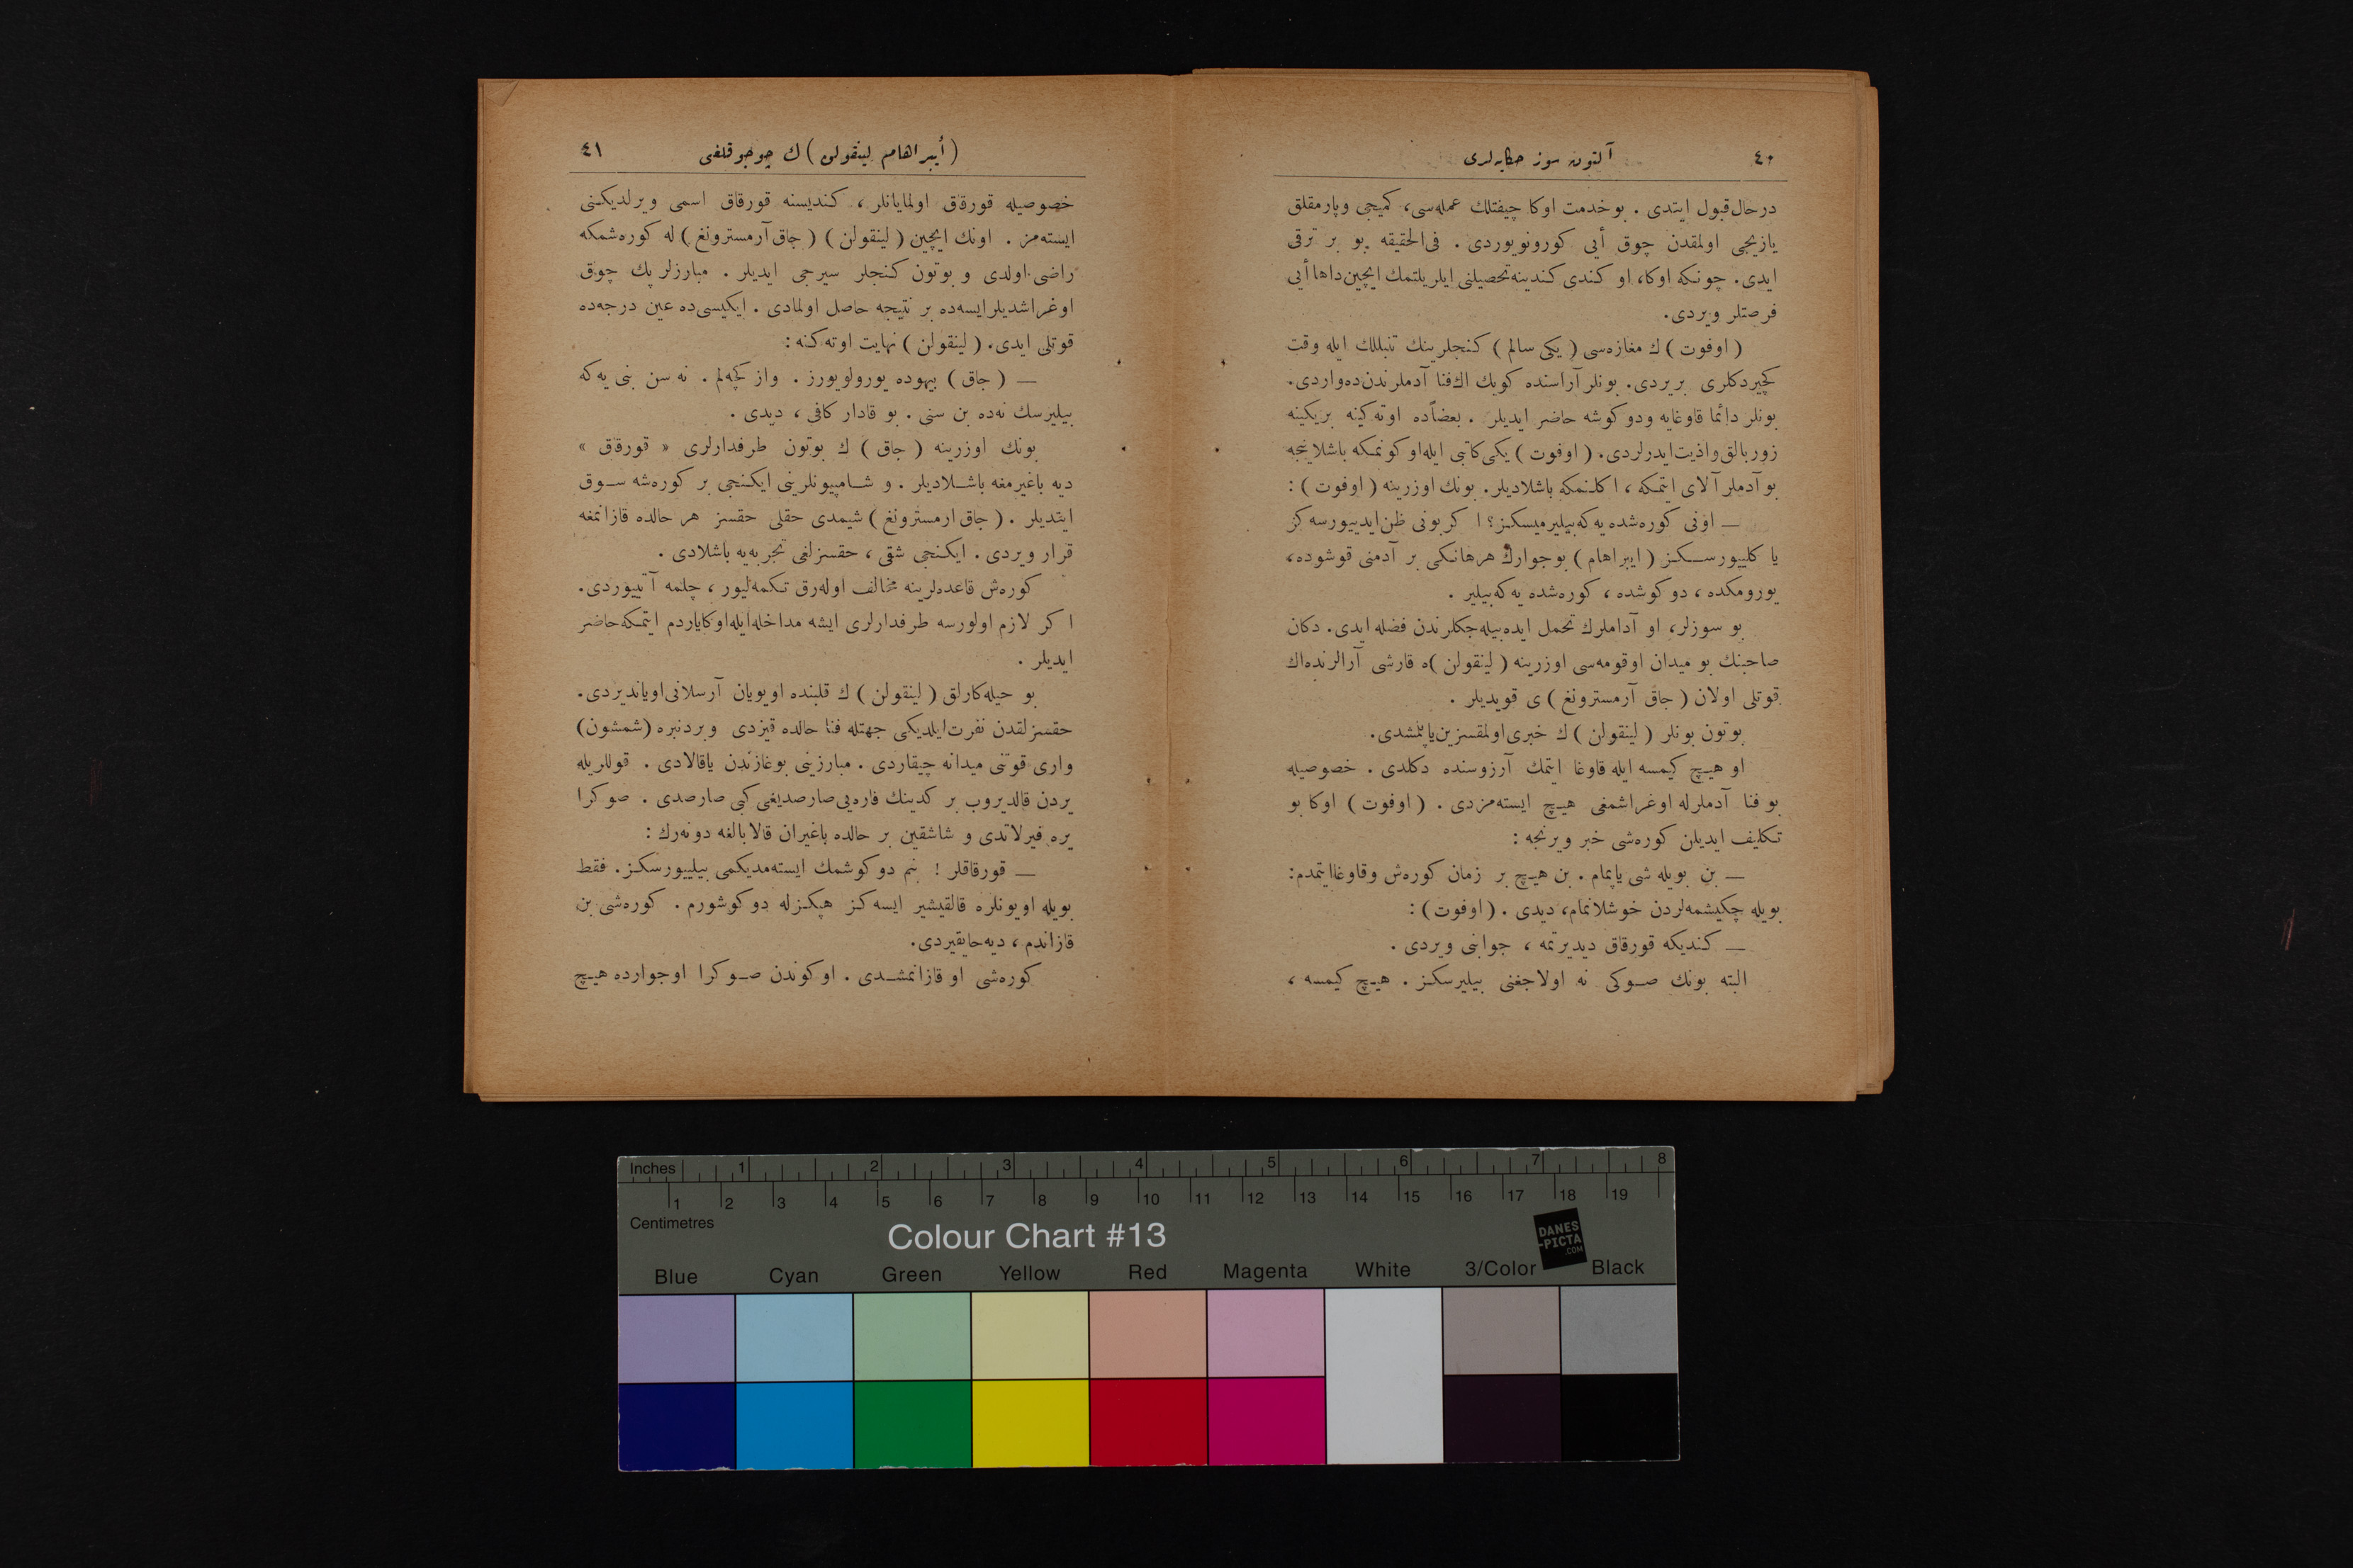 ٤٠
آلتون سوز حكايه‌لری
درحال قبول ایتدی . بو خدمت اوكا چیفتلك عمله‌سی، كمیجی وپارمقلق
یازیجی اولمقدن چوق أیی كورونویوردی . فی‌الحقیقه بو بر ترقی
ایدی. چونكه اوكا، او كندی كندینه تحصیلنی ایلریلتمك ایچین داها أیی
فرصتلر ویردی.
( اوفوت ) ك مغازه‌سی ( یكی سالم ) كنجلرینك تنبللك ایله وقت
كچیردكلری بر یردی. بونلر آراسنده كویك اك فنا آدملرندن ده واردی.
بونلر دائما قاوغایه ودوكوشه حاضر ایدیلر . بعضاً ده اوته كینه بریكینه
زوربالق واذیت ایدرلردی. ( اوفوت ) یكی كاتبی ایله اوكونمكه باشلاینجه
بو آدملر آلای ایتمكه ، اكلنمكه باشلادیلر. بونك اوزرینه ( اوفوت ) :
— اونی كوره‌شده یه‌كه‌بیلیرمیسكز؟ اكر بونی ظن ایدییورسه كز
یا كلییورسـكـز ( ایبراهام ) بو جوارك هرهانكی بر آدمنی قوشوده،
یورومكده ، دوكوشده ، كوره‌شده یه‌كه‌بیلیر .
بو سوزلر، او آداملرك تحمل ایده‌بیله‌جكلرندن فضله ایدی. دكان
صاحبنك بو میدان اوقومه‌سی اوزرینه ( لینقولن )ه قارشی آرالرنده اك
قوتلی اولان ( جاق آرمسترونغ ) ی قویدیلر .
بوتون بونلر ( لینقولن ) ك خبری اولمقسزین یاپلمشدی.
او هیـچ كیمسه ایله قاوغا ایتمك آرزوسنده دكلدی . خصوصیله
بو فنا آدملرله اوغراشمغی هیـچ ایسته‌مزدی . ( اوفوت ) اوكا بو
تكلیف ایدیلن كوره‌شی خبر ویرنجه :
— بن بویله شی یاپمام . بن هیـچ بر زمان كوره‌ش وقاوغا ایتمدم:
بویله چكیشمه‌لردن خوشلانمام، دیدی . ( اوفوت ) :
— كندیكه قورقاق دیدیرتمه ، جوابنی ویردی .
البته بونك صـوكی نه اولاجغنی بیلیرسكـز . هیـچ كیمسه ،
( أیبراهام لینقولن ) ك چوجوقلغی
٤١
خصوصیله قورقاق اولمایانلر ، كندیسنه قورقاق اسمی ویرلدیكـنی
ایسته‌مز . اونك ایچین ( لینقولن ) ( جاق آرمسترونغ ) له كوره‌شمكه
راضی اولدی و بوتون كنجلر سیرجی ایدیلر . مبارزلر پك چوق
اوغراشدیلر ایسه‌ده بر نتیجه حاصل اولمادی . ایكیسی ده عین درجه‌ده
قوتلی ایدی. ( لینقولن ) نهایت اوته كنه :
— ( جاق ) بیهوده یورولویورز . واز كچه‌لم . نه سن بنی یه‌كه
بیلیرسك نه‌ده بن سنی . بو قادار كافی ، دیدی .
بونك اوزرینه ( جاق ) ك بوتون طرفدارلری « قورقاق »
دیه باغیرمغه باشـلادیلر . و شـامپیونلرینی ایكـنجی بر كوره‌شه سـوق
ایتدیلر . ( جاق ارمسترونغ ) شیمدی حقلی حقسز هر حالده قازانمغه
قرار ویردی . ایكـنجی شقی ، حقسزلغی تجربه‌یه باشلادی .
كوره‌ش قاعده‌لرینه مخالف اوله‌رق تكمه‌لیور ، چلمه آتییوردی.
اكر لازم اولورسه طرفدارلری ایشه مداخله ایله اوكا یاردم ایتمكه حاضر
ایدیلر .
بو حیله‌كارلق ( لینقولن ) ك قلبنده اویویان آرسلانی اویاندیردی.
حقسزلقدن نفرت ایلدیكی جهتله فنا حالده قیزدی وبردنبره (شمشون)
واری قوتنی میدانه چیقاردی . مبارزینی بوغازندن یاقالادی . قوللریله
یردن قالدیروب بر كدینك فاره‌یی صارصدیغی كبی صارصدی . صوكرا
یره فیرلاتدی و شاشقین بر حالده باغیران قالابالغه دونه‌رك :
— قورقاقلر ! بنم دوكوشمك ایسته‌مدیكمی بیلییورسكـز. فقط
بویله اویونلره قالقیشیر ایسه كز هپكـزله دوكوشورم . كوره‌شی بن
قازاندم ، دیه حایقیردی.
كوره‌شی او قازانمشـدی . اوكوندن صـوكرا اوجوارده هیـچ
Inches 1 2 3 4 5 6 7 8
1 2 3 4 5 6 7 8 9 10 11 12 13 14 15 16 17 18 19
Centimetres
Colour Chart #13
DANES
-PICTA
.COM
Blue Cyan Green Yellow Red Magenta White 3/Color Black